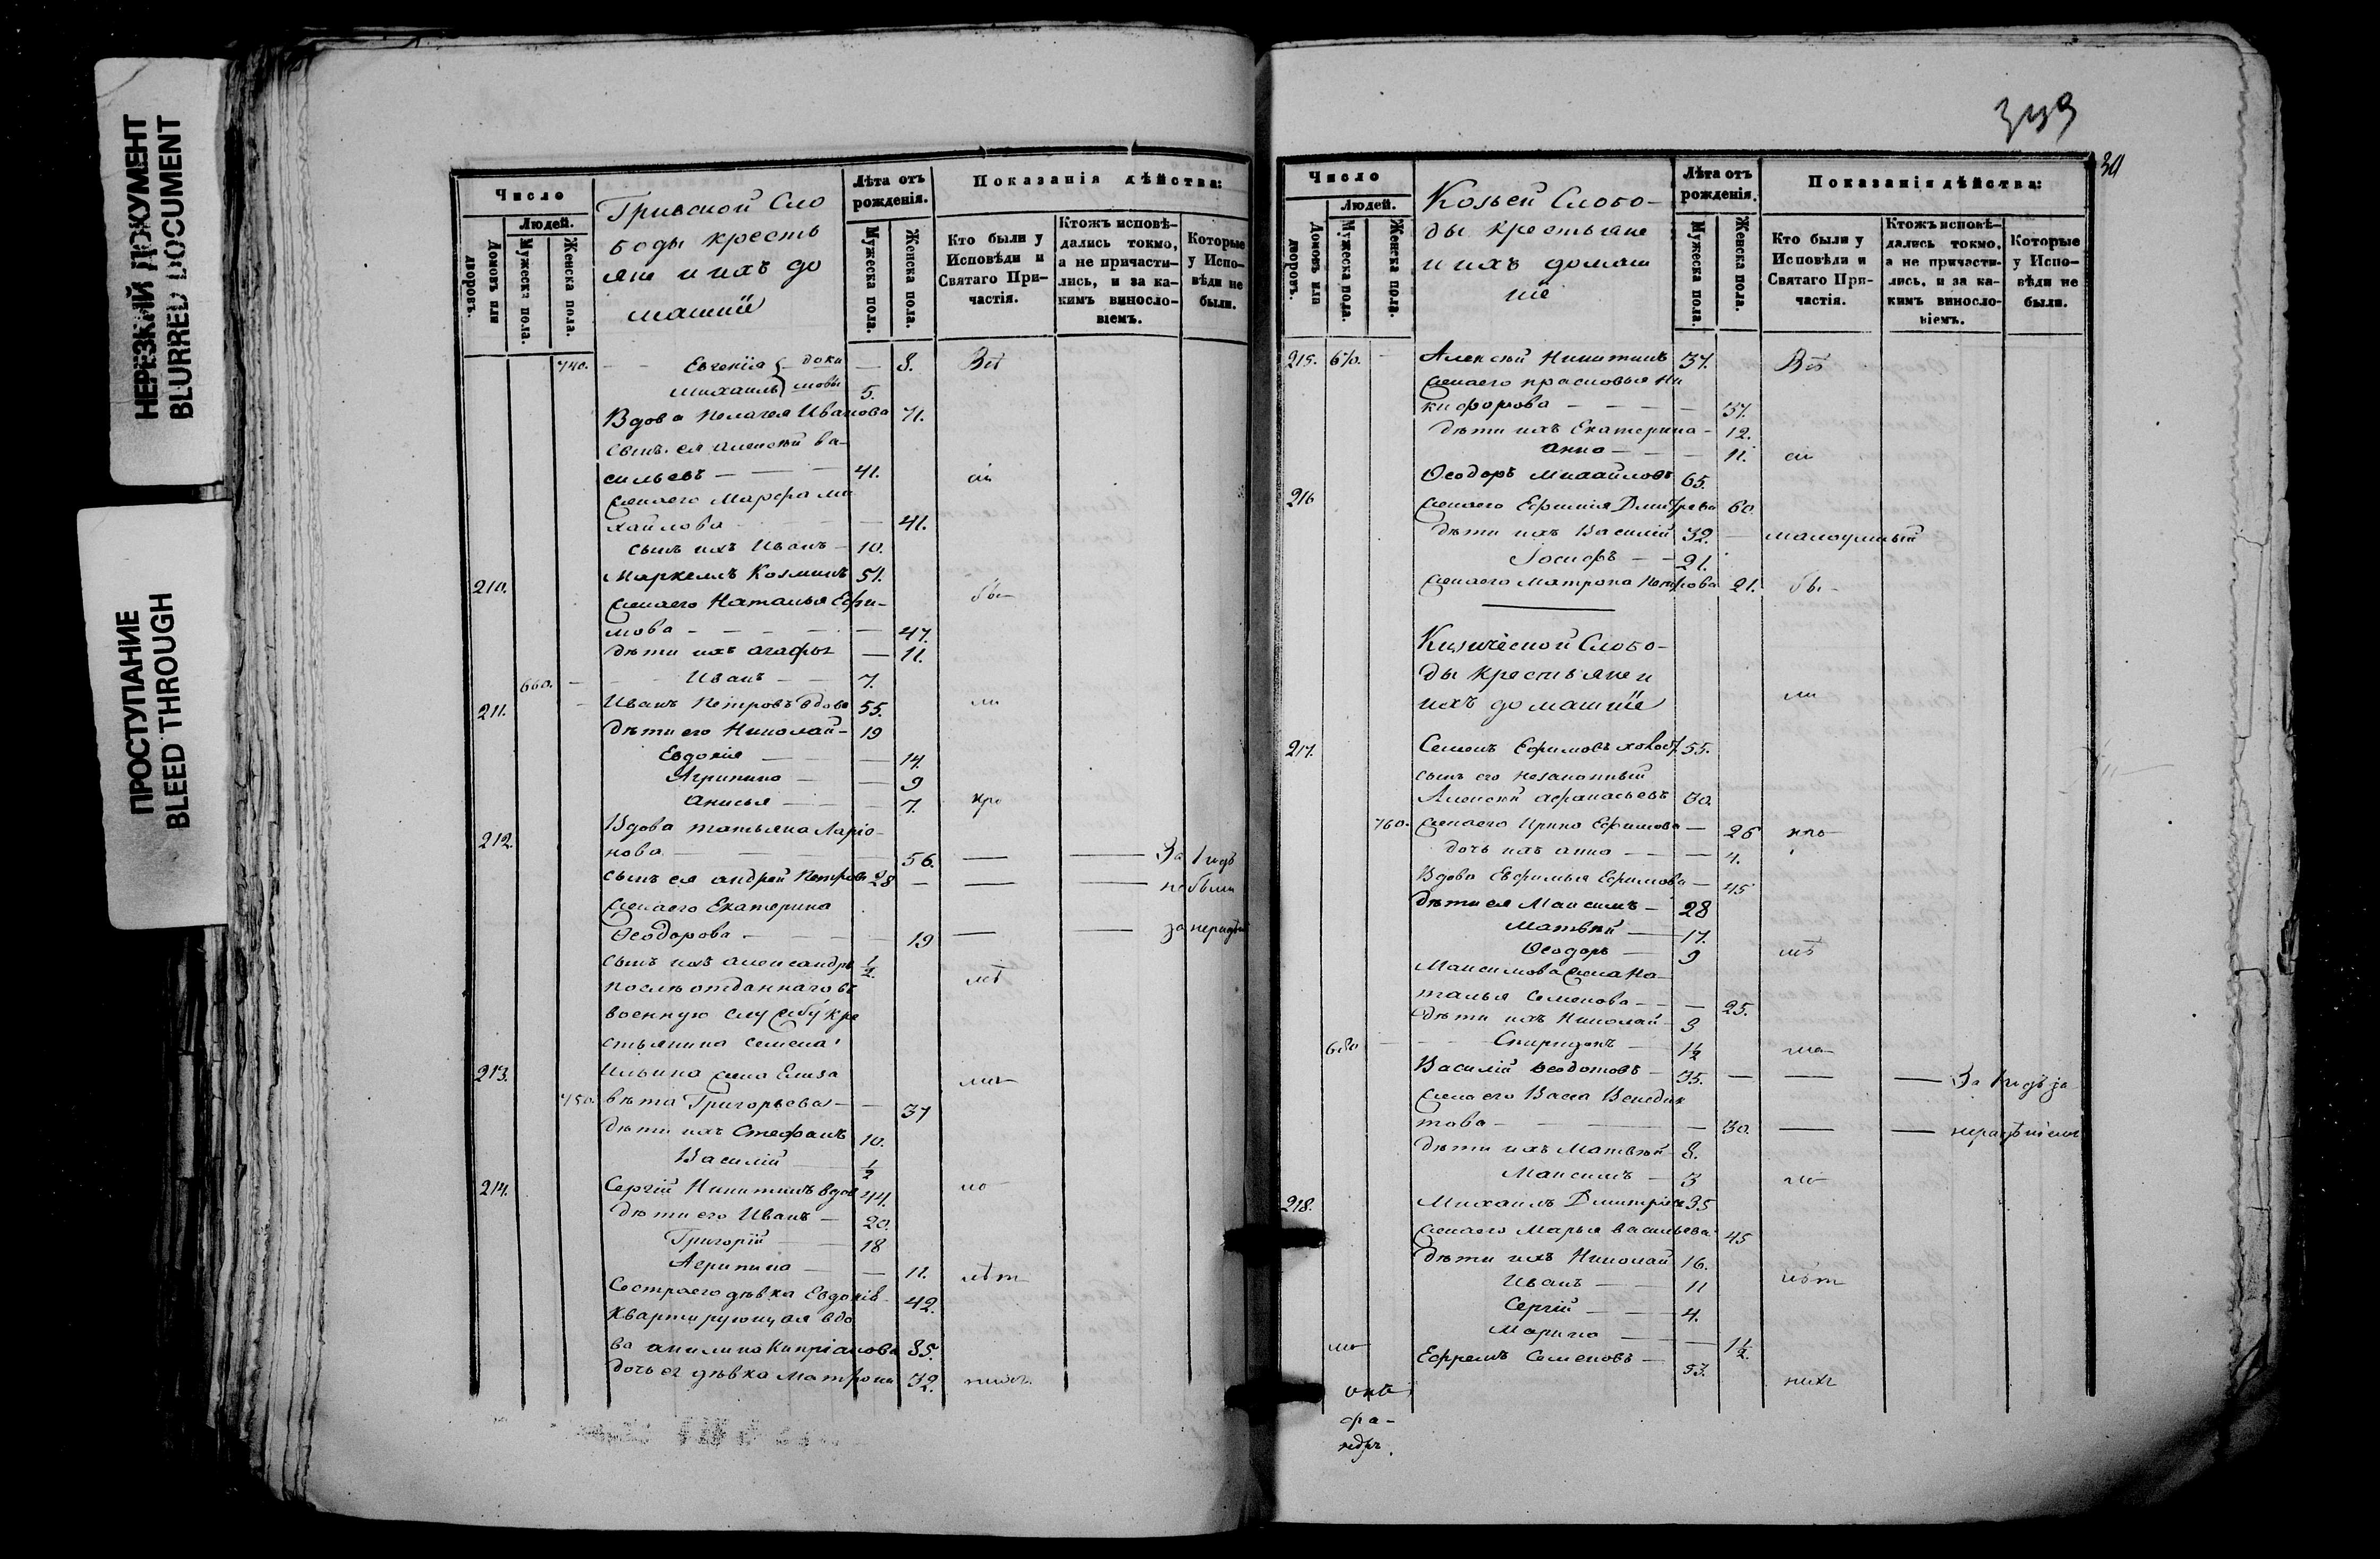 НЕРЕЗКИЙ ДОКУМЕНТ
BLURRED DOCUMENT
ПРОСТУПАНИЕ
BLEED THROUGH
Число
Людей.
Домовъ или дворовъ.
Мужеска пола.
Женска пола.
Гривской Сло
боды кресть
яне и ихъ до
машнїе
Лѣта отъ рожденія.
Мужеска пола.
Женска пола.
Показанія дѣйства:
Кто были у Исповѣди и Святаго При-частія.
Ктожъ исповѣ-дались токмо, а не причасти-лись, и за ка-кимъ винословіемъ.
Которые у Испо-вѣди не были.
740. Евгенїя 8.
Михаилъ 5.
Вдова Пелагея Иванова 71.
сынъ ея Алексѣй Ва-
сильевъ 41.
Жена его Марфа Ми
хайлова 41.
сынъ ихъ Иванъ 10.
210. Маркеллъ Козминъ 51. бы-
Жена его Наталья Ефи-
мова 47.
дѣти ихъ Агафья 11.
660. Иванъ 7.
211. Иванъ Петровъ вдовъ 55. ли
дѣти его Николай 19
Евдокія 14.
Агрипина 9
Анисья 7.
212. Вдова Татьяна Ларіо-
нова 56. За 1 годъ
сынъ ея Андрей Петровъ 28 не были
Жена его Екатерина
Ѳеодорова 19
сынъ ихъ Александръ 1/2
послѣ отданнаго въ
военную службу кре
стьянина Семена
213. Ильина жена Елиза
750. вѣта Григорьева 37
дѣти ихъ Стефанъ 10.
Василій 1/2
214. Сергій Никитинъ вдов 44.
дѣти его Иванъ 20.
Григорій 18
Агрипина 11.
Сестра его дѣвка Евдокія 42.
Квартирующая вдо
ва Акилина Кипріанова 85.
дочь ея дѣвка Матрона 32.
Число
Людей.
Домовъ или дворовъ.
Мужеска пола.
Женска пола.
Козьей Слобо-
ды крестьяне
и ихъ домаш
ніе
Лѣта отъ рожденія.
Мужеска пола.
Женска пола.
Показанія дѣйства:
Кто были у Исповѣди и Святаго При-частія.
Ктожъ исповѣ-дались токмо, а не причасти-лись, и за ка-кимъ винословіемъ.
Которые у Испо-вѣди не были.
215. 670. Алексѣй Никитинъ 37.
Жена его Прасковья Ни
кифорова 37.
дѣти ихъ Екатерина 12.
Анна 11.
216 Ѳеодоръ Михайловъ 65.
Жена его Ефимія Дмитрева 60.
дѣти ихъ Василій 32. малоумный
Іосифъ 21.
Жена его Матрона Петрова 21. бы-
Кизической Слобо-
ды крестьяне и
ихъ домашнїе ли
217. Семенъ Ефимовъ 55.
сынъ его незаконный
Алексѣй Афанасьевъ 30.
760. Жена его Ирина Ефимова 26
дочь ихъ Анна 4.
Вдова Евфимья Ефимова 45
дѣти ея Максимъ 28
Матвѣй 17.
Ѳеодоръ 9
Максимова жена На-
талья Семенова 25.
дѣти ихъ Николай 3
680 Спиридонъ 1 1/2
Василій Ѳеодотовъ 35. За 1 годъ за
Жена его Васса Венедик
това 30. нерадѣніемъ
дѣти ихъ Матвѣй 8.
Максимъ 3
218. Михаилъ Дмитріевъ 35
Жена его Марья Васильева 45
дѣти ихъ Николай 16.
Иванъ 11
Сергій 4.
Марина 1 1/2.
Ефремъ Семеновъ 53.